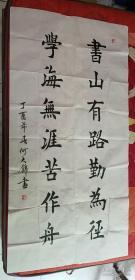 書山有路勤為徑
學海無涯苦作舟
丁酉年春何大錦書